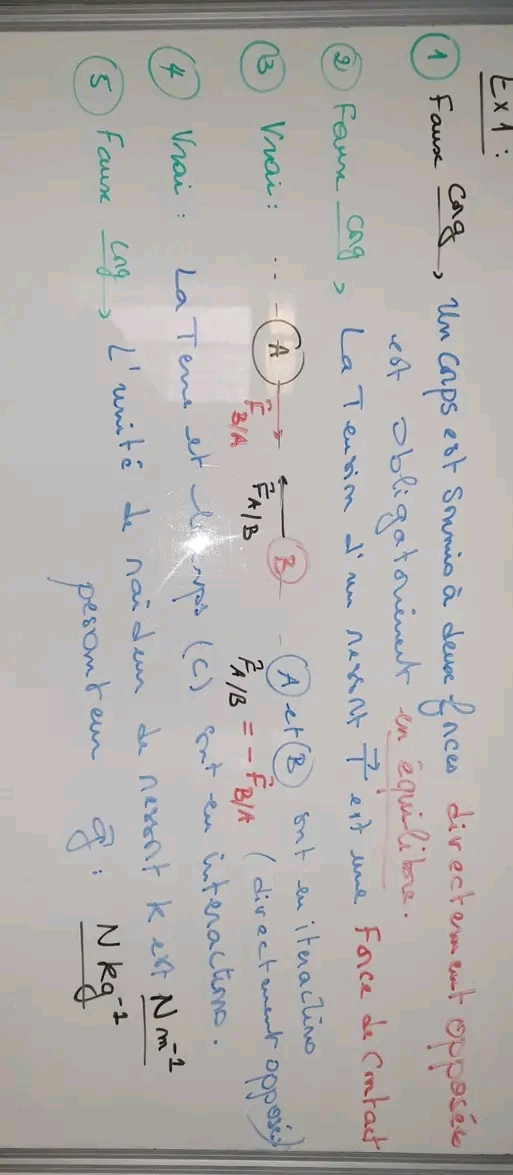 Ex 1 :
① Faux Crg → Un corps est soumis à deux forces directement opposées
est obligatoirement en équilibre.
② Faux crg > La Tension d'un ressort T⃗ est une Force de Contact
③ Vrai : ... A F⃗ B/A F⃗ A/B B A et B sont en iteraction
F⃗ A/B = - F⃗ B/A (directement opposés)
④ Vrai : La Terre et le (C) sont en interaction.
⑤ Faux crg > L'unité de raideur de ressort k est N m⁻¹
pesanteur g⃗ : N kg⁻¹